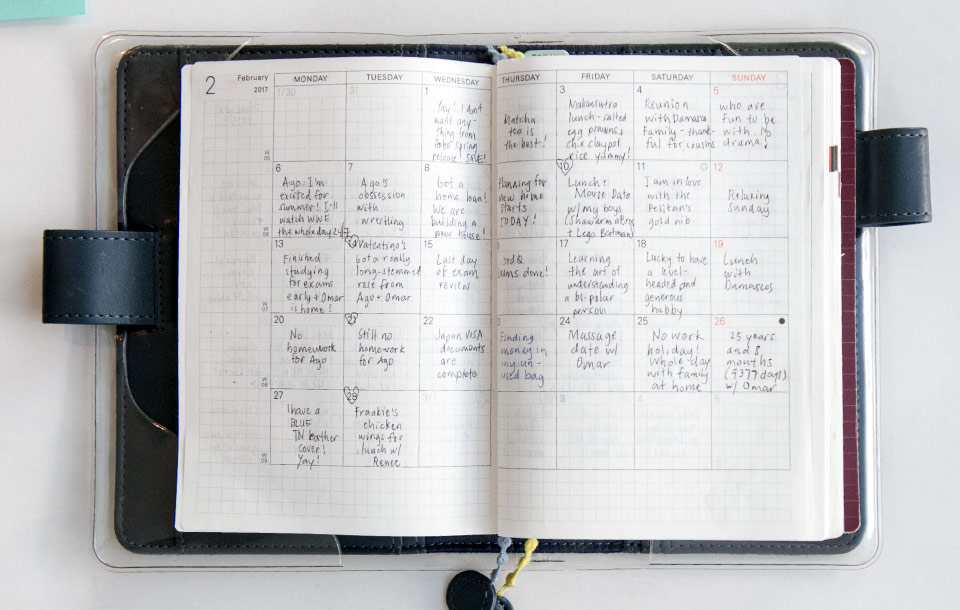 2
February
2017
MONDAY
TUESDAY
WEDNESDAY
THURSDAY
FRIDAY
SATURDAY
SUNDAY
1/30
31
1
Yay! I don't
want any-
thing from
hobo spring
release! SAVE!
Matcha
tea is
the best!
3
Makansutra
lunch - salted
egg prawns &
chix claypot
rice yummy!
4
Reunion
with Damasco
Family - thank-
ful for cousins
5
who are
fun to be
with. No
drama!
W
05
6
Ago: I'm
excited for
summer! I'll
watch WWE
the whole day 24/7
7
Ago's
obsession
with
wrestling
8
Got a
home loan!
We are
building a
new house!
Planning for
new home
starts
TODAY!
10
Lunch +
Mouse Date
w/ my boys
(Shawarma Bros
+ Lego Batman)
11
I am in love
with the
Pelikan's
gold nib
12
Relaxing
Sunday
W
06
13
Finished
studying
for exams
early + Omar
is home!
14
Valentino's
Got a really
long-stemmed
rose from
Ago + Omar
15
Last day
of exam
review
3rd Q
done!
17
Learning
the art of
understanding
a bi-polar
person
18
Lucky to have
a level-
headed and
generous
hubby
19
Lunch
with
Damascos
W
07
20
No
homework
for Ago
21
Still no
homework
for Ago
22
Japan VISA
documents
are
complete
Finding
money in
my un-
used bag
24
Massage
date w/
Omar
25
No work
holiday!
Whole day
with family
at home
26
25 years
and 8
months
(9377 days)
w/ Omar
W
08
27
I have a
BLUE
TN leather
cover!
Yay!
28
Frankie's
chicken
wings for
lunch w/
Renee
3/1
3
4
5
W
09